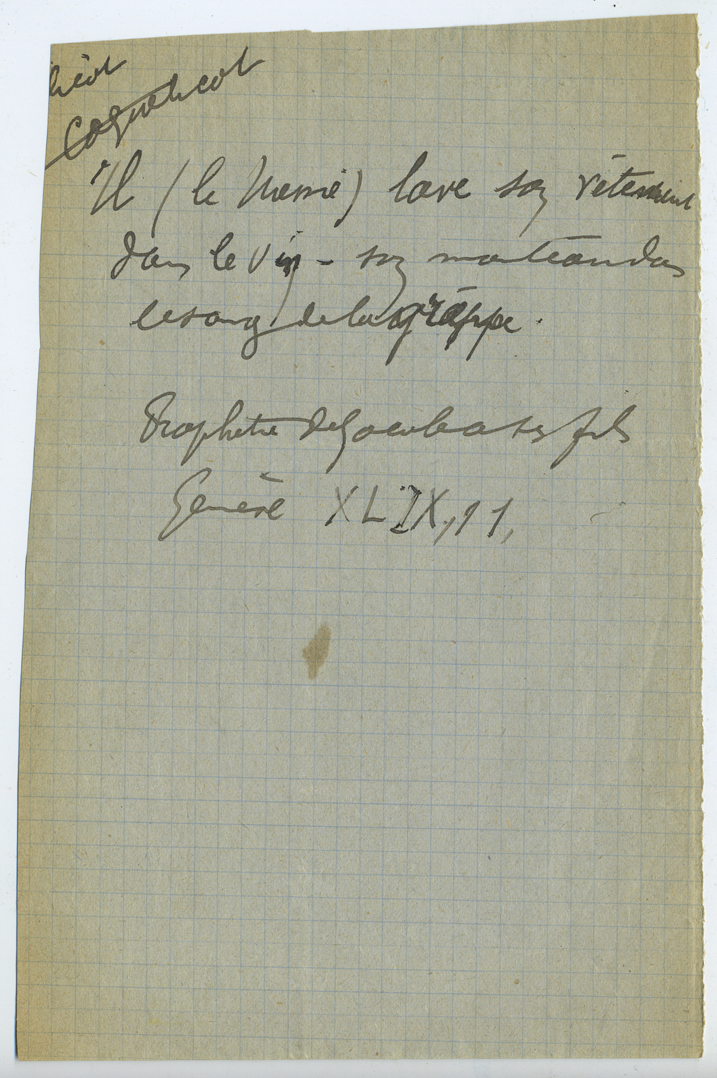 licot
coquelicot
Il (le Messie) lave son vêtement
dans le vin - son manteau dans
le sang de la grappe.
Prophétie de Jacob à ses fils
Genèse XLIX, 11,